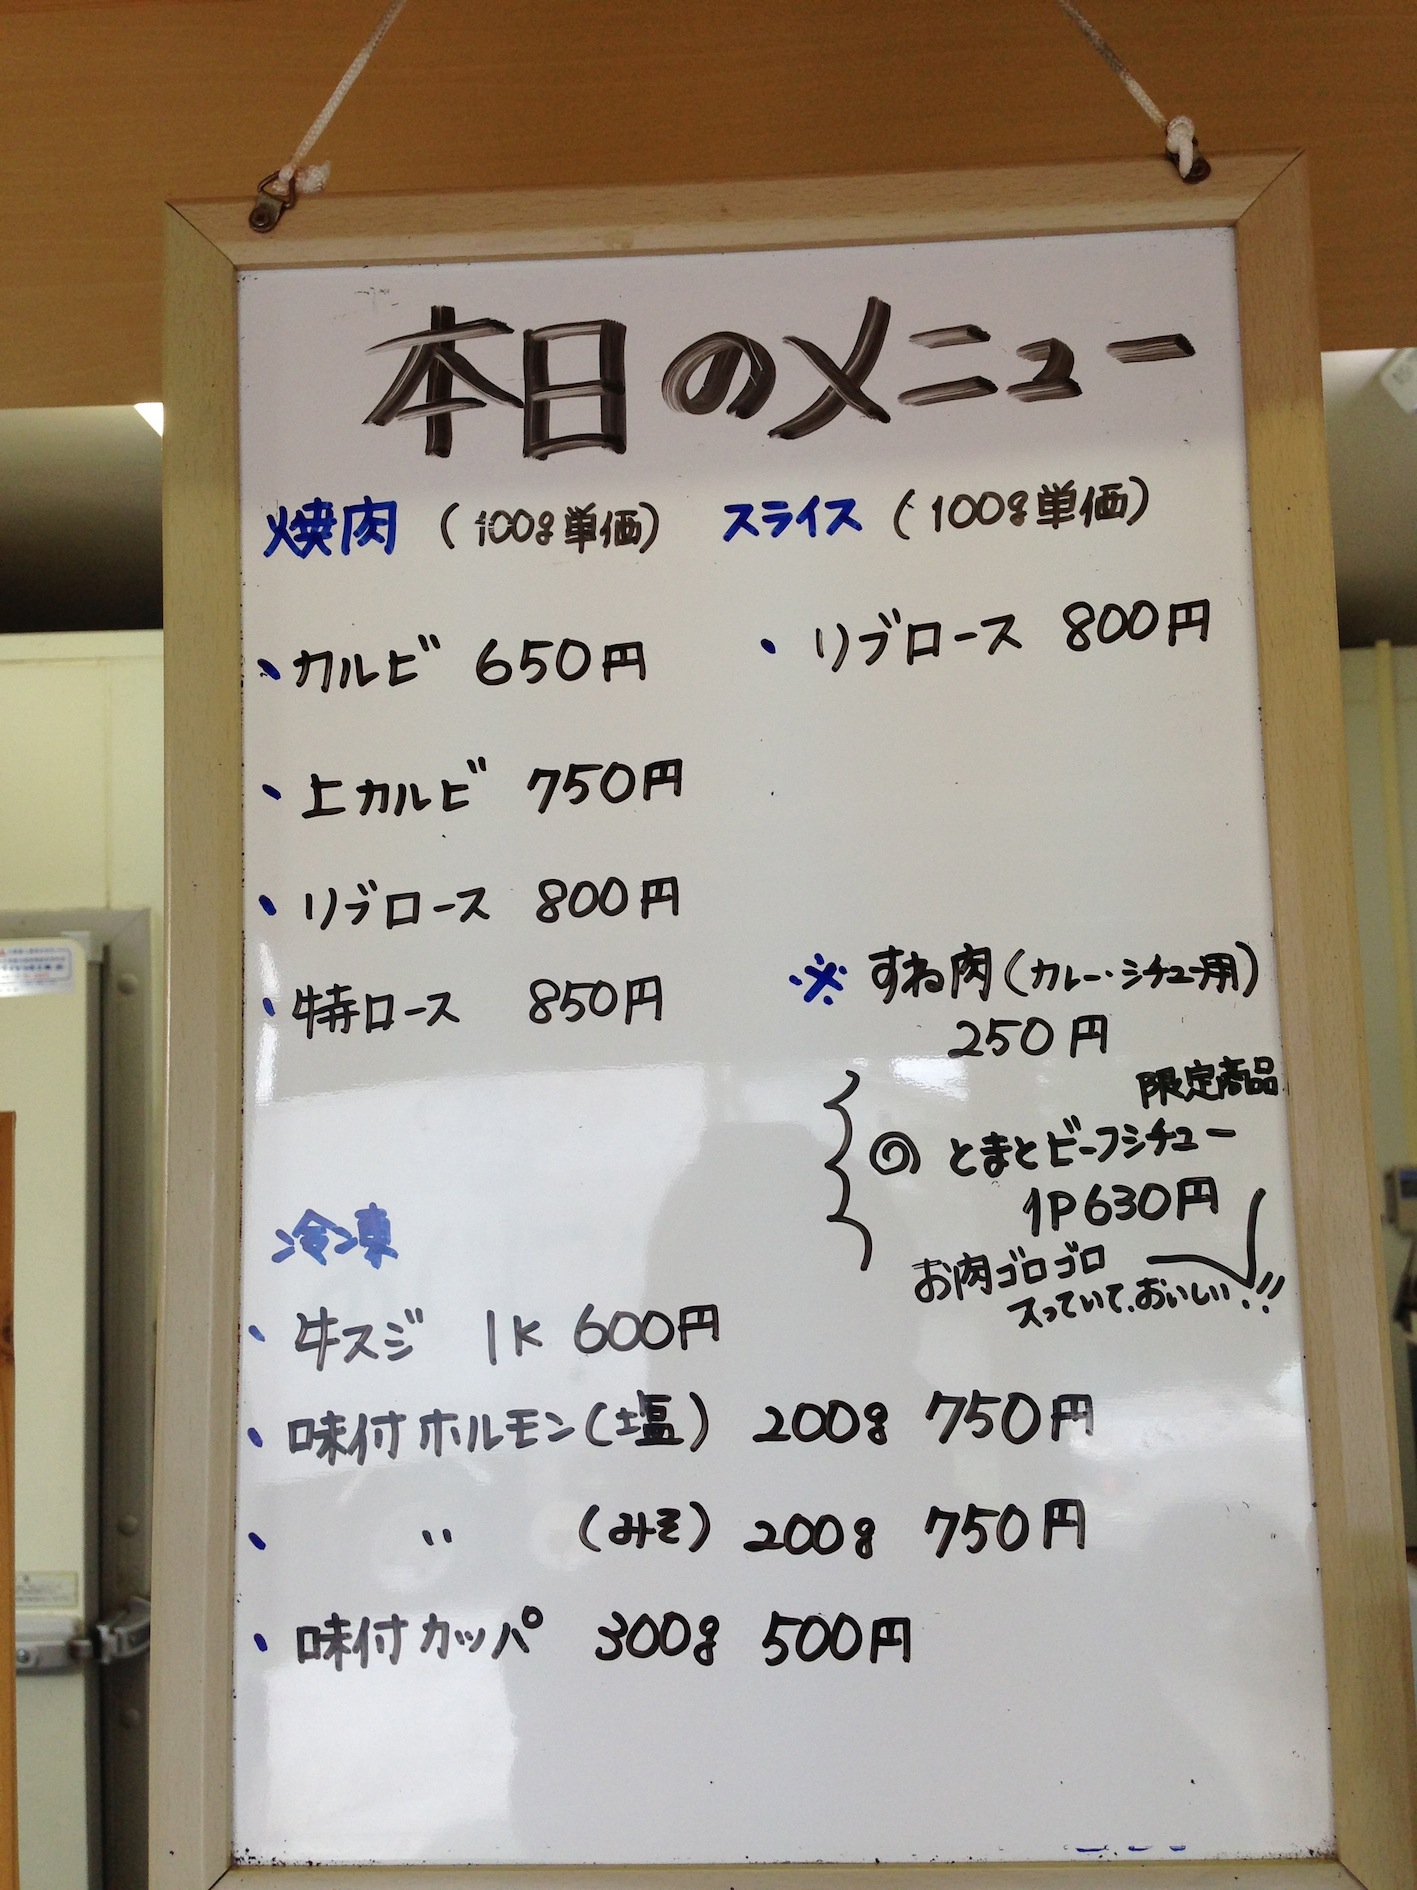 本日のメニュー
焼肉 (100g単価)
・カルビ 650円
・上カルビ 750円
・リブロース 800円
・特ロース 850円
スライス (100g単価)
・リブロース 800円
※ すね肉(カレー・シチュー用)
250円
限定商品
◎ とまとビーフシチュー
1P630円
お肉ゴロゴロ
入っていて、おいしい!!
冷凍
・牛スジ 1K 600円
・味付ホルモン(塩) 200g 750円
・〃 (みそ) 200g 750円
・味付カッパ 300g 500円